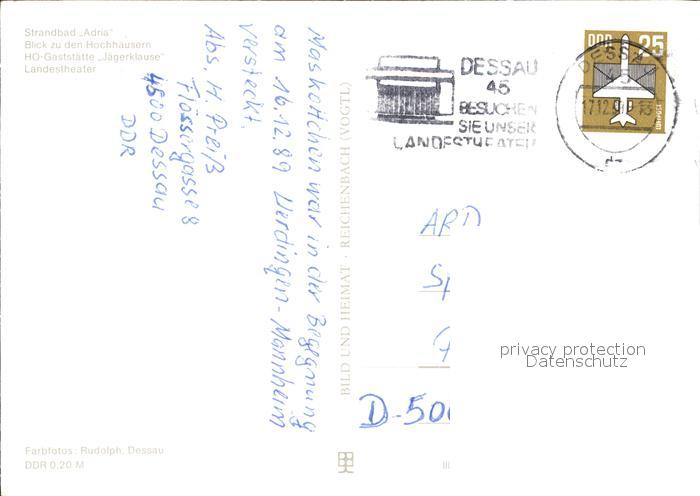 Strandbad „Adria"
Blick zu den Hochhäusern
HO-Gaststätte „Jägerklause"
Landestheater
Maskottchen war in der Begegnung
am 16.12.89 Uerdingen-Mannheim
versteckt.
Abs. H. Preiß
Flössergasse 8
4500 Dessau
DDR
Farbfotos: Rudolph, Dessau
DDR 0,20 M
BILD UND HEIMAT · REICHENBACH (VOGTL)
DESSAU
45
BESUCHEN
SIE UNSER
LANDESTHEATER
DDR 25
DESSAU
45
17.12.
ARD
D-500
privacy protection
Datenschutz